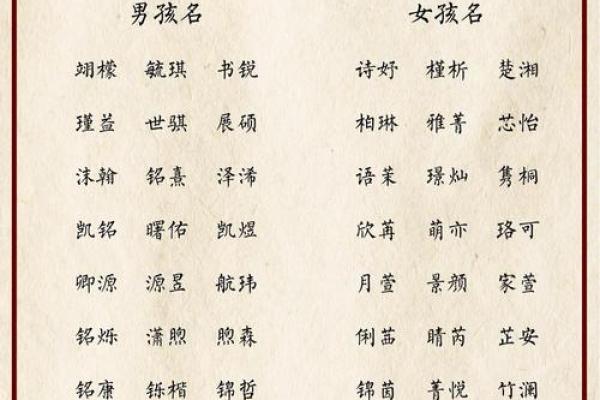 男孩名 女孩名
翊檬 毓琪 书锐 诗妤 槿析 楚湘
瑾益 世骐 展硕 柏琳 雅菁 芯怡
沫翰 铭熹 泽浠 语茉 璟灿 隽桐
凯铭 曙佑 凯煜 欣苒 萌亦 珞可
卿源 源昱 航玮 月萱 景颜 家萱
铭烁 潇煦 煦森 俐茜 晴芮 芷安
铭康 铄楷 锦哲 锦茵 菁悦 竹澜